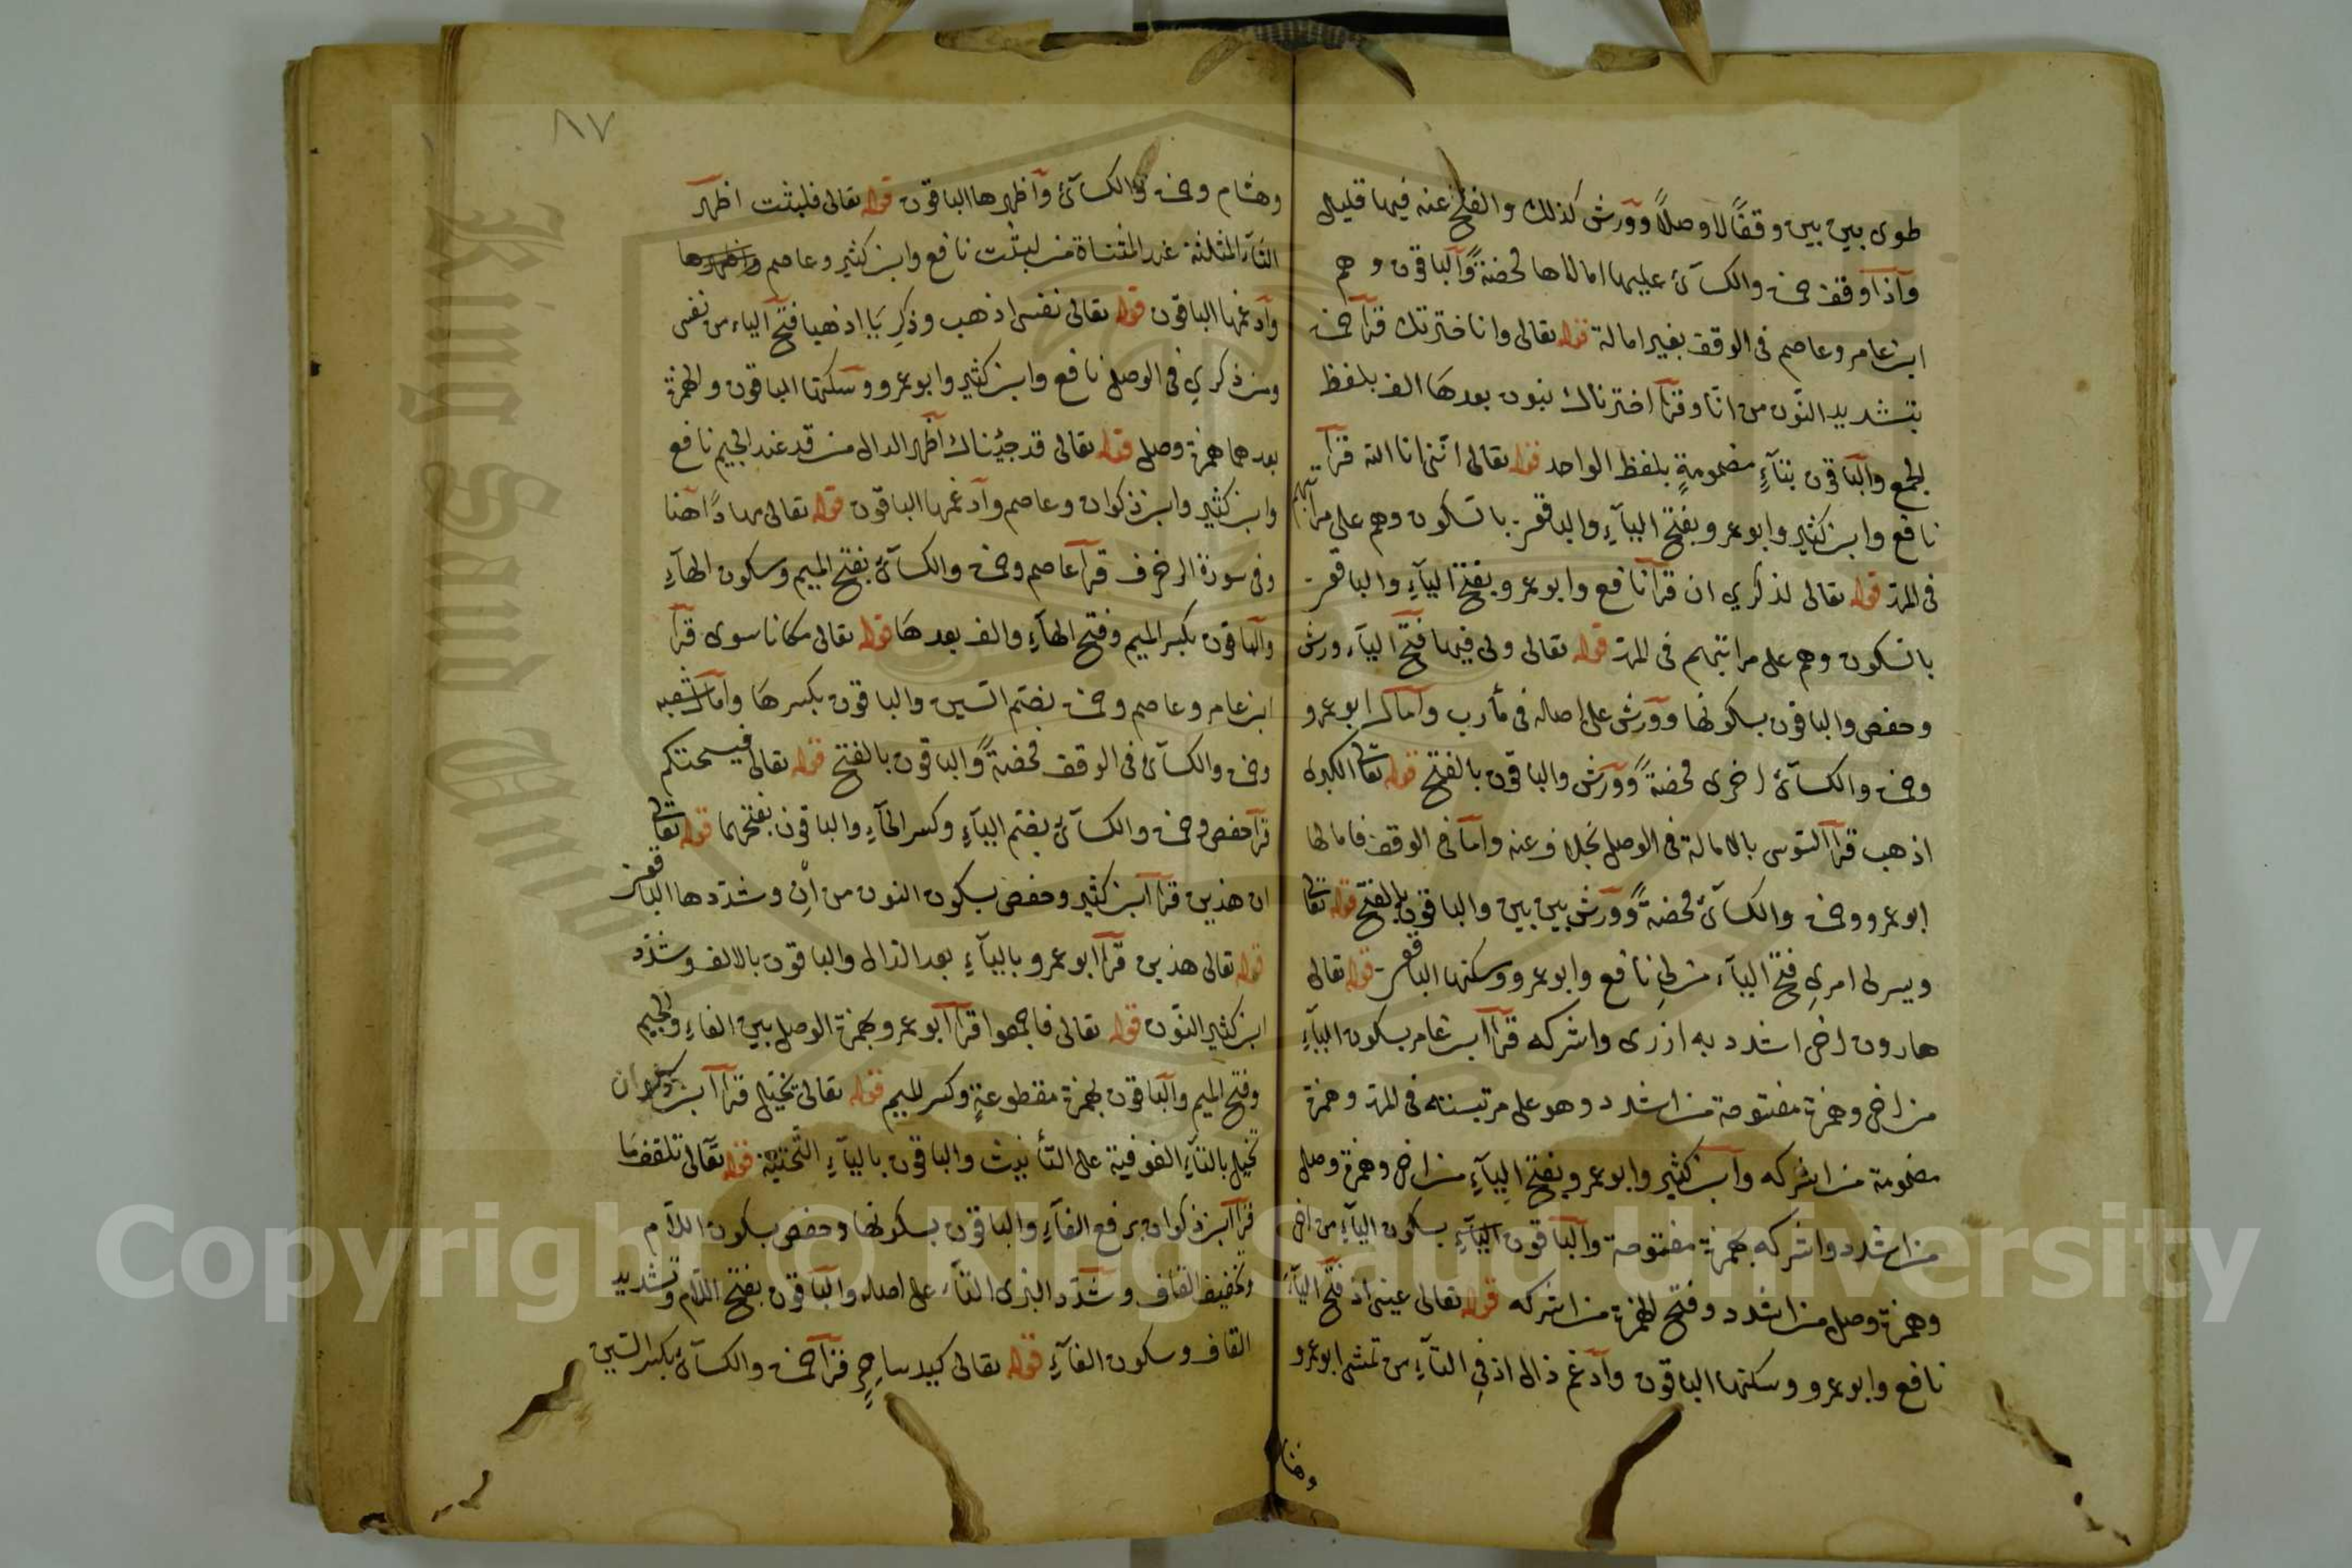 طوى بين بين وقفًا لا وصلاً وورش كذلك والفتح عنه فيها قليل
وآذا وقف حمزة والكسآئ عليها امالاها محضةً والباقون وهم
ابن عامر وعاصم فى الوقف بغير امالة قوله تعالى وانا خترتك قرأ حمزة
بتشديد النّون من انّا وقرأ اخترناك بنون بعدهَا الف بلفظ
الجمع والباقون بتآءٍ مضمومةٍ بلفظ الواحد قوله تعالى انّنى انا الله قرأ
نافع وابن كثير وابو عمرو بفتح اليآءِ والباقون بالسكون وهم على مراتبهم
فى المدّ قوله تعالى لذكري ان قرأ نافع وابو عمرو بفتح اليآءِ والباقون
بالسكون وهم على مراتبهم فى المدّ قوله تعالى ولى فيها فتح اليآء ورش
وحفص والباقون بسكونها وورش على اصله فى مأرب وآمال ابو عمرو
وحمزة والكسآئ اخرى محضةً وورش والباقون بالفتح قوله تعالى الكبرى
اذهب قرأ السّوسى بالامالة فى الوصل بخلاف عنه وامّا فى الوقف فامالها
ابو عمرو وحمزة والكسآئ محضةً وورش بين بين والباقون بالفتح قوله تعالى
ويسر لى امرى فتح اليآء من لى نافع وابو عمرو وسكنها الباقون قوله تعالى
هارون اخى اشدد به ازرى واشركه قرأ ابن عامر بسكون اليآءِ
من اخى وهمزة مفتوحة من اشدد وهو على مرتبته فى المدّ وهمزة
مضمومة من اشركه وآبن كثير وابو عمرو بفتح اليآءِ من اخى وهمزة وصل
من اشدد واشركه بهمزة مفتوحة والباقون اليآءِ بسكون اليآءِ من اخى
وهمزة وصل من اشدد وفتح الهمزة من اشركه قوله تعالى عينى اذ فتح اليآءَ
نافع وابو عمرو وسكنها الباقون وآدغم ذال اذ فى التآءِ من تمشى ابو عمرو
وهشام
٨٧
وهشام وحمزة والكسآئ وآظهرها الباقون قوله تعالى فلبثت اظهر
الثآء المثلثة عند المثناة من لبثت نافع وابن كثير وعاصم واظهرها
وآدغمها الباقون قوله تعالى نفسى اذهب وذكرِىَ اذهبا فتح اليآء من نفسى
ومن ذكرِي فى الوصل نافع وابن كثير وابو عمرو وسكنها الباقون والهمزة
بعدهما همزة وصل قوله تعالى قد جئناك اظهر الدال من قد عند الجيم نافع
وابن كثير وابن ذكوان وعاصم وآدغمها الباقون قوله تعالى مهادًا هنا
وفى سورة الزخرف قرأ عاصم وحمزة والكسآئ بفتح الميم وسكون الهآءِ
والباقون بكسر الميم وفتح الهآءِ والف بعدهَا قوله تعالى مكانا سوى قرأ
ابن عامر وعاصم وحمزة بضم السّين والباقون بكسرهَا وآمال شعبه
وحمزة والكسآئ فى الوقف محضةً والباقون بالفتح قوله تعالى فيسحتكم
قرأ حفص وحمزة والكسآئ بضم اليآءِ وكسر الحآءِ والباقون بفتحهما قوله تعالى
ان هذين قرأ ابن كثير وحفص بسكون النون من انْ وشدّدها الباقون
قوله تعالى هذين قرأ ابو عمرو باليآءِ بعد الذال والباقون بالالف وشدّد
ابن كثير النّون قوله تعالى فاجمعوا قرأ ابو عمرو بهمزة الوصل بين الفاء والجيم
وفتح الميم والباقون بهمزة مقطوعةٍ وكسر الميم قوله تعالى يخيّل قرأ ابن ذكوان
تخيل بالتآءِ الفوقية على التّأنيث والباقون باليآءِ التّحتيّة قوله تعالى تلقف ما
قرأ ابن ذكوان برفع الفآءِ والباقون بسكونها وحفص بسكون اللّام
وتخفيف القاف وشدّد البزى التّآء على اصله والباقون بفتح اللّام وتشديد
القاف وسكون الفآءِ قوله تعالى كيد ساحرٍ قرأ حمزة والكسآئ بكسر السّين
King Saud University
Copyright © King Saud University